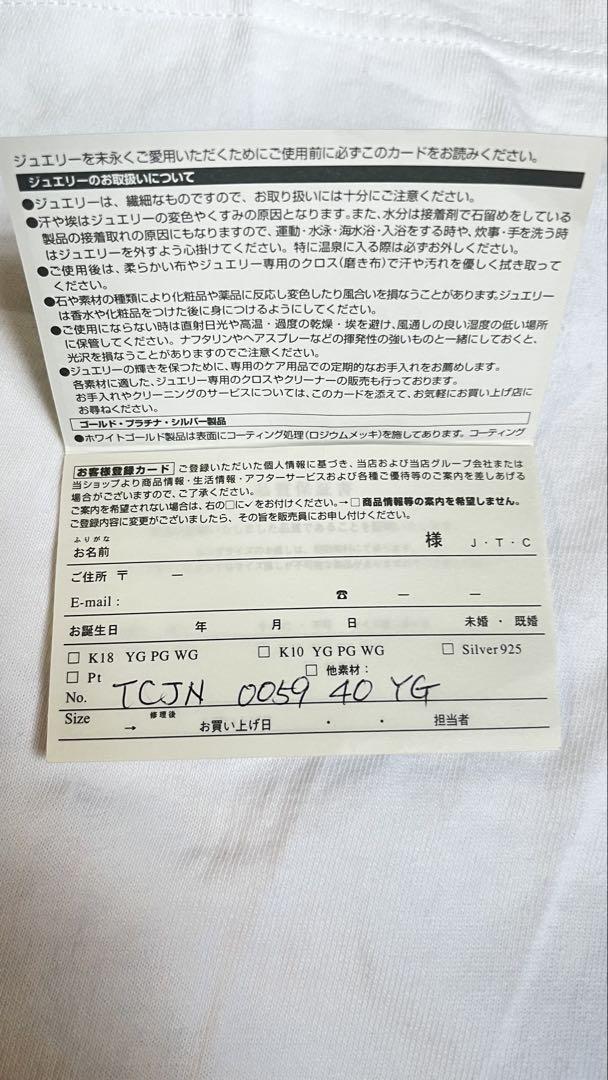 ジュエリーを末永くご愛用いただくためにご使用前に必ずこのカードをお読みください。
ジュエリーのお取扱いについて
●ジュエリーは、繊細なものですので、お取り扱いには十分にご注意ください。
●汗や埃はジュエリーの変色やくすみの原因となります。また、水分は接着剤で石留めをしている
製品の接着取れの原因にもなりますので、運動・水泳・海水浴・入浴をする時や、炊事・手を洗う時
はジュエリーを外すよう心掛けてください。特に温泉に入る際は必ずお外しください。
●ご使用後は、柔らかい布やジュエリー専用のクロス(磨き布)で汗や汚れを優しく拭き取って
ください。
●石や素材の種類により化粧品や薬品に反応し変色したり風合いを損なうことがあります。ジュエリー
は香水や化粧品をつけた後に身につけるようにしてください。
●ご使用にならない時は直射日光や高温・過度の乾燥・埃を避け、風通しの良い湿度の低い場所
に保管してください。ナフタリンやヘアスプレーなどの揮発性の強いものと一緒にしておくと、
光沢を損なうことがありますのでご注意ください。
●ジュエリーの輝きを保つために、専用のケア用品での定期的なお手入れをお薦めします。
各素材に適した、ジュエリー専用のクロスやクリーナーの販売も行っております。
お手入れやクリーニングのサービスについては、このカードを添えて、お気軽にお買い上げ店に
お尋ねください。
ゴールド・プラチナ・シルバー製品
●ホワイトゴールド製品は表面にコーティング処理(ロジウムメッキ)を施してあります。コーティング
お客様登録カード ご登録いただいた個人情報に基づき、当店および当店グループ会社または
当ショップより商品情報・生活情報・アフターサービスおよび各種ご優待等のご案内を差しあげる
場合がございますので、ご了承ください。
ご案内を希望されない場合は、右の□に✓をお付けください。→□商品情報等の案内を希望しません。
ご登録内容に変更がございましたら、その旨を販売員にお申し付けください。
ふりがな
お名前 様 J・T・C
ご住所 〒 ー
E-mail : ☎ ー ー
お誕生日 年 月 日 未婚・既婚
□ K18 YG PG WG □ K10 YG PG WG □ Silver925
□ Pt □ 他素材:
No. TCJN 0059 40 YG
Size → 修理後 お買い上げ日 ・ ・ 担当者